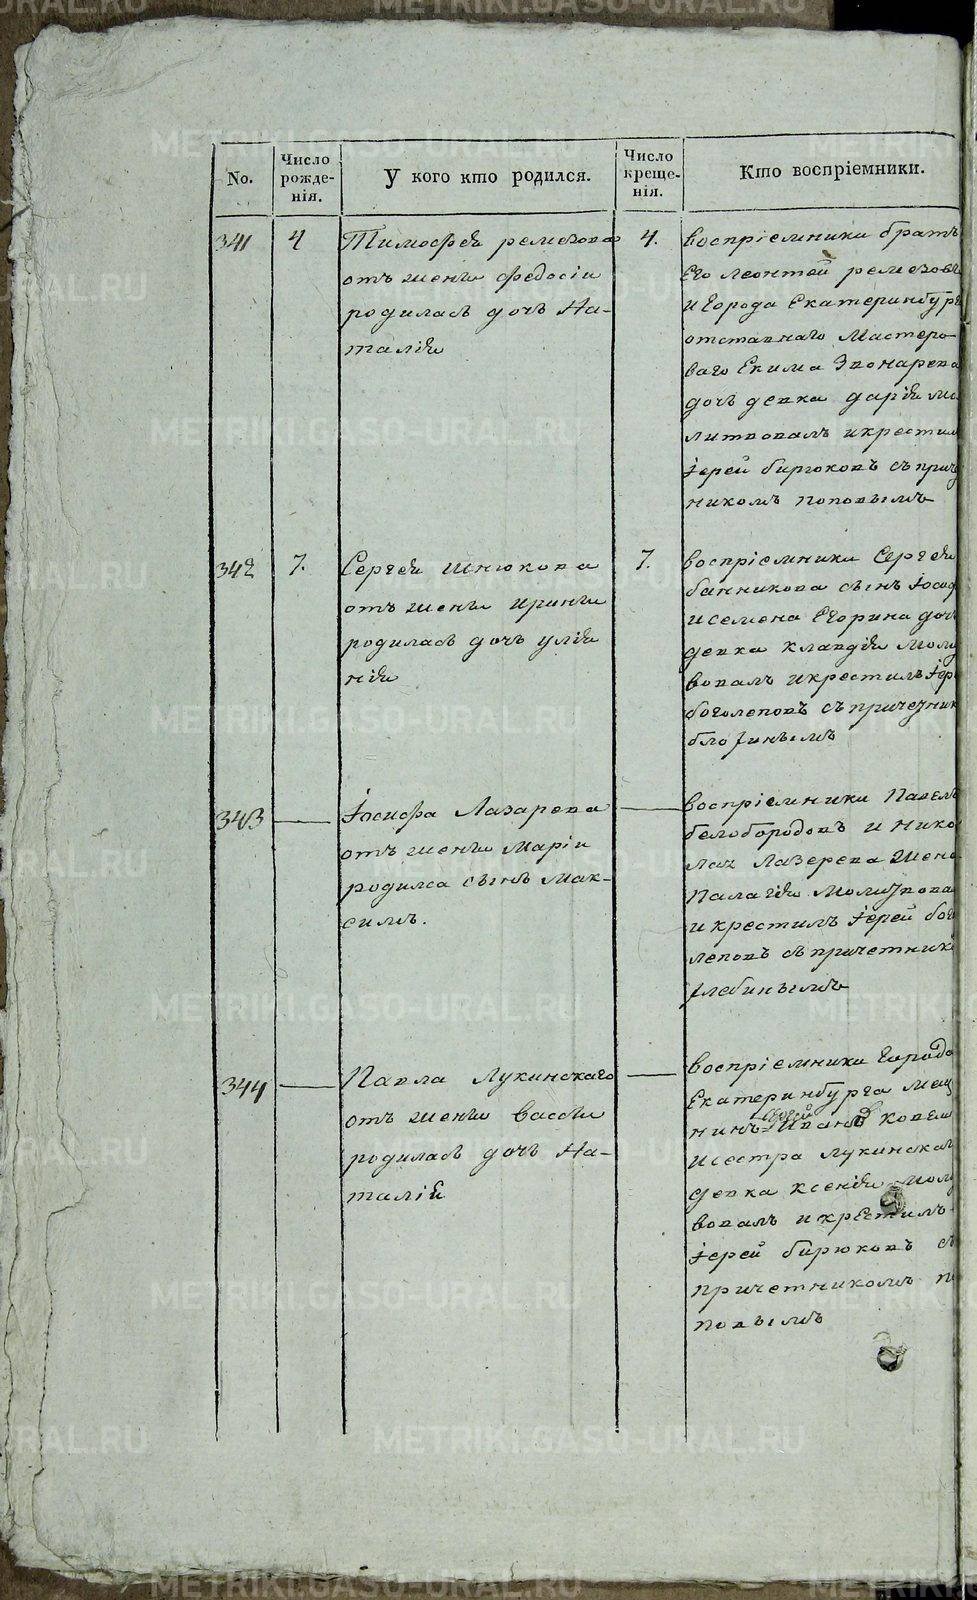 No.
Число рожденія.
У кого кто родился.
Число крещенія.
Кто воспріемники.
341
4
Тимофея ремезова
отъ жены федосіи
родилась дочь На-
талія
4.
воспріемники братъ
Его леонтей ремезовъ
и города Екатеринбург
отставнаго Мастеро-
ваго Екима Звонарева
дочь девка дарія мо
литвовалъ и крестил
Іерей бирюковъ съ прич
никомъ поповымъ
342
7.
Сергея шнюкова
отъ жены ирины
родилась дочь улія
нія
7.
воспріемники Сергея
банникова сынъ Іосиф
и семена Егорина доч
девка клавдія моли
вовалъ и крестилъ Іер
боголеповъ съ причетник
343
Іосифа Лазарева
отъ жены Маріи
родился сынъ Мак-
симъ.
воспріемники Павелъ
белобородовъ и Нико
лая Лазерева жена
Палагія Молитвова
и крестилъ Іерей бого
леповъ съ причетник
глебинымъ
344
Павла Лукинскаго
отъ жены вассы
родилась дочь На-
талія
воспріемники Города
Екатеринбурга мещ
нинъ Иванъ
и сестра лукинскаг
девка ксенія моли
вовалъ и крестилъ
Іерей бирюковъ съ
причетникомъ по
повымъ
METRIKI.GASO-URAL.RU